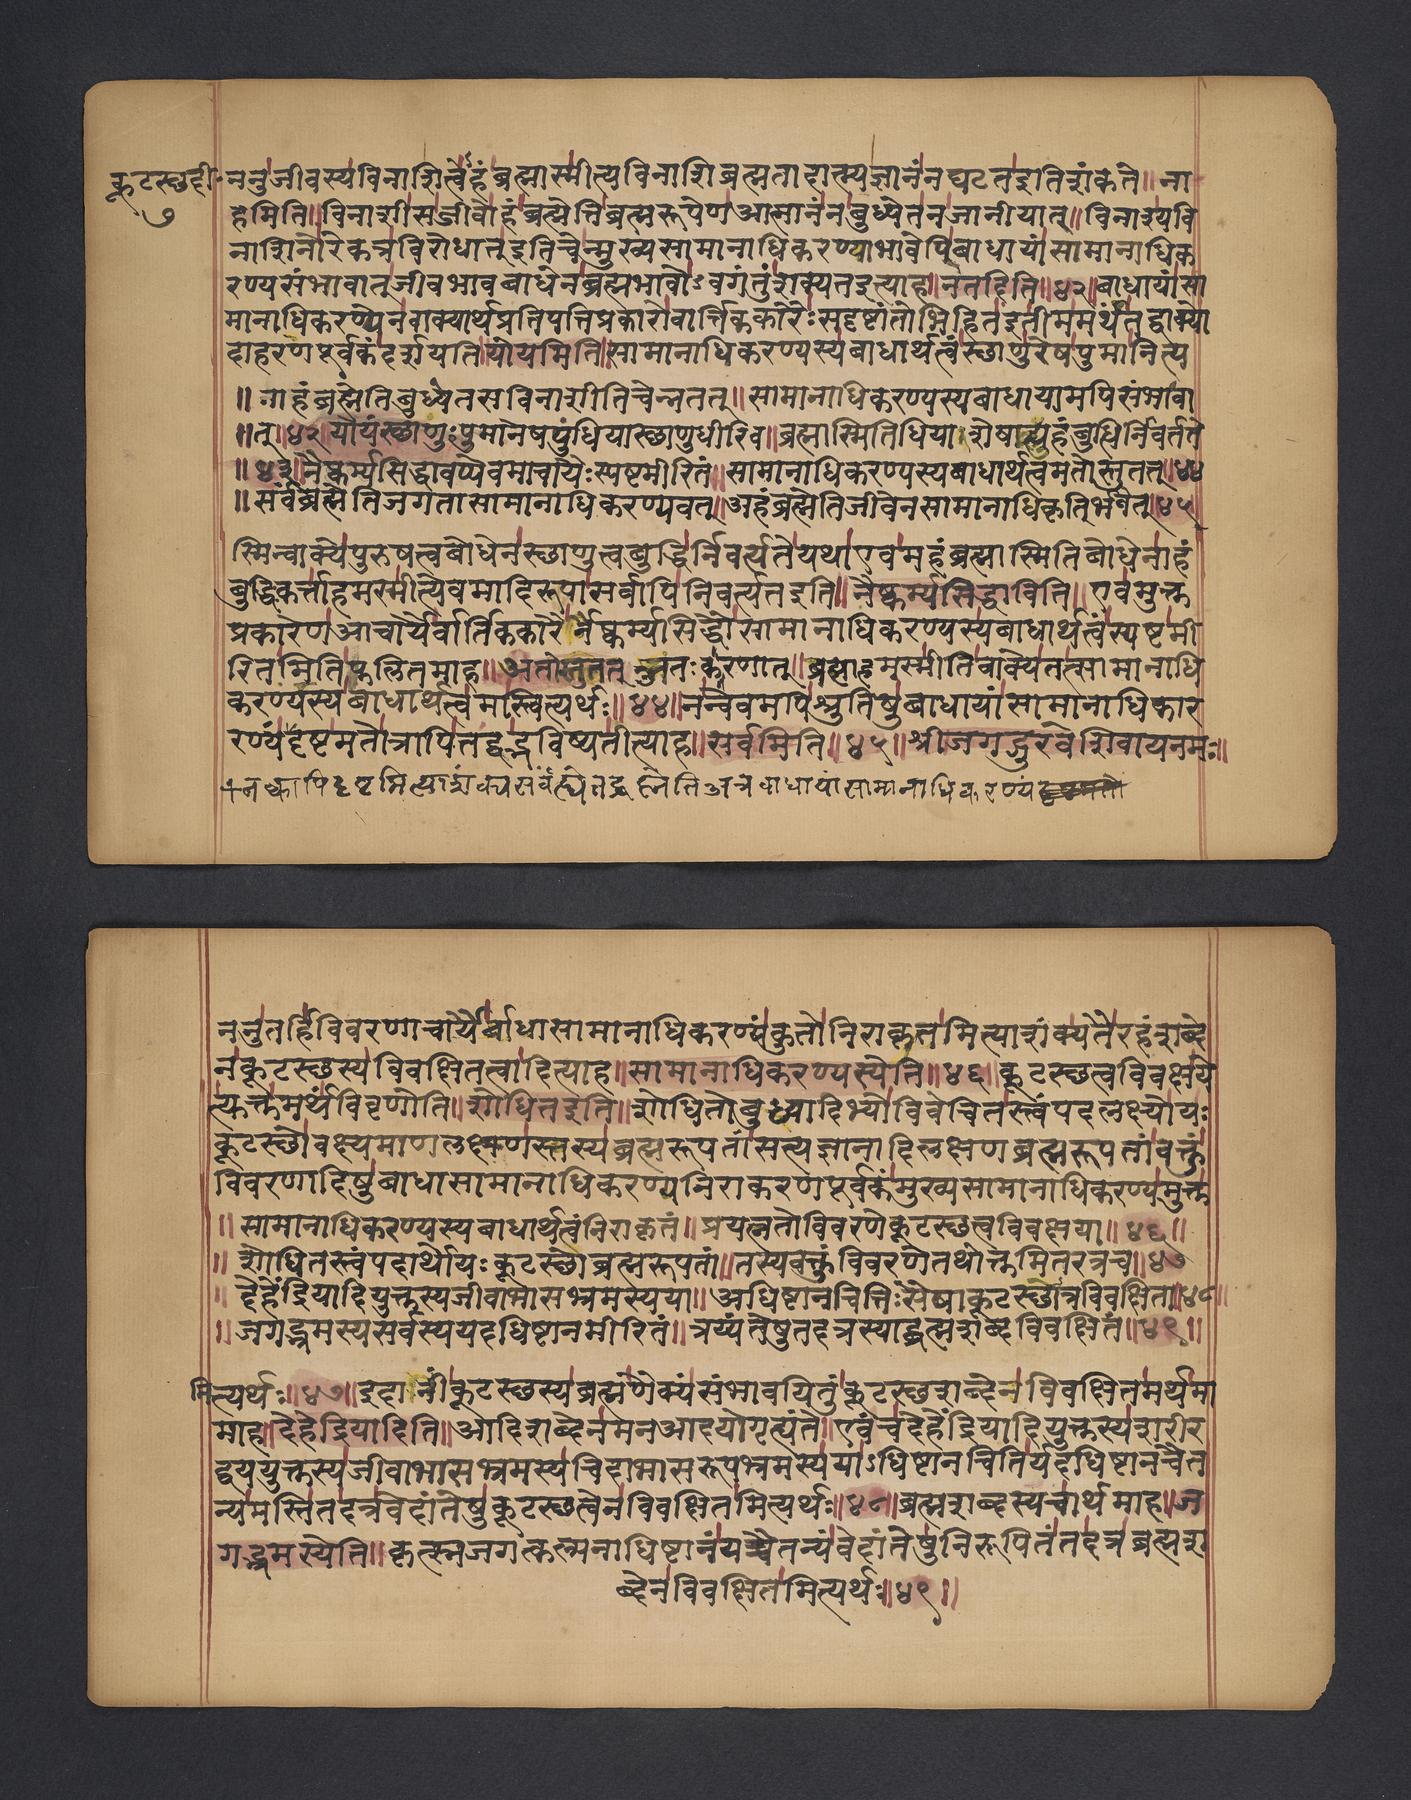 कूटस्छदी॰
७
ननुजीवस्यविनाशित्वेऽहंब्रह्मास्मीत्यविनाशिब्रह्मतादात्म्यज्ञानंनघटतइतिशंकते॥ना
हमिति॥विनाशीसजीवोहंब्रह्मेतिब्रह्मरूपेणआत्मानंनबुध्येतनजानीयात्॥विनाश्यवि
नाशिनोरेकत्रविरोधात्इतिचेन्मुख्यसामानाधिकरण्याभावेपिबाधायांसामानाधिक
रण्यसंभावात्जीवभावबाधेनब्रह्मभावोऽवगंतुंशक्यतइत्याह॥नतदिति॥४२॥बाधायांसा
मानाधिकरण्येनवाक्यार्थप्रतिपत्तिप्रकारोवार्त्तिककारैःसदृष्टांतोभिहितइतीममर्थंतद्वाक्यो
दाहरणपूर्वकंदर्शयति॥योयमिति॥सामानाधिकरण्यस्यबाधार्थत्वंस्छाणुरेषपुमानित्य
॥नाहंब्रह्मेतिबुध्येतसविनाशीतिचेन्नतत्॥सामानाधिकरण्यस्यबाधायामपिसंभवा
॥त्॥४२॥योयंस्छाणुःपुमानेषपुंधियास्छाणुधीरिव॥ब्रह्मास्मितिधियाशेषाप्यहंबुधिर्निवर्तते
॥४३॥नैष्कर्म्यसिद्धावप्येवमाचार्यैःस्पष्टमीरितं॥सामानाधिकरण्यस्यबाधार्थत्वमतोस्तुतत्॥४४
॥सर्वंब्रह्मेतिजगतासामानाधिकरण्यवत्॥अहंब्रह्मेतिजीवेनसामानाधिकृतिर्भवेत्॥४५
स्मिन्वाक्येपुरुषत्वबोधेनस्छाणुत्वबुद्धिर्निवर्त्यतेयथाएवमहंब्रह्मास्मितिबोधेनाहं
बुद्धिकर्त्ताहमस्मीत्येवमादिरूपासर्वापिनिवर्त्यतइति॥नैष्कर्म्यसिद्धाविति॥एवमुक्त
प्रकारेणआचार्यैर्वार्तिककारैर्नैष्कर्म्यसिद्धौसामानाधिकरण्यस्यबाधार्थत्वंस्पष्टमी
रितमितिफलितमाह॥अतोस्तुतत्॥अतःकारणात्॥ब्रह्माहमस्मीतिवाक्येतत्सामानाधि
करण्यस्यबाधार्थत्वमस्त्वित्यर्थः॥४४॥नन्वेवमपिश्रुतिषुबाधायांसामानाधिकार
रण्यंदृष्टमतोत्रापितद्वद्भविष्यतीत्याह॥सर्वमिति॥४५॥श्रीजगद्गुरवेशिवायनमः॥
नक्वापिदृष्टमित्याशंक्यसर्वंह्येतद्ब्रह्मेतिअत्रबाधायांसामानाधिकरण्यं
ननुतर्हिविवरणाचार्यैर्बाधासामानाधिकरण्यंकुतोनिराकृतमित्याशंक्यतैरहंशब्दे
नकूटस्छस्यविवक्षितत्वादित्याह॥सामानाधिकरण्यस्येति॥४६॥कूटस्छत्वविवक्षये
त्युक्तमर्थंविवृणोति॥शोधितइति॥शोधितोबुध्यादिभ्योविवेचितस्त्वंपदलक्ष्योयः
कूटस्छोवक्ष्यमाणलक्षणस्तस्यब्रह्मरूपतांसत्यज्ञानादिलक्षणब्रह्मरूपतांवक्तुं
विवरणादिषुबाधासामानाधिकरण्यनिराकरणपूर्वकंमुख्यसामानाधिकरण्यमुक्त
॥सामानाधिकरण्यस्यबाधार्थत्वंनिराकृतं॥प्रयत्नतोविवरणेकूटस्छत्वविवक्षया॥४६॥
॥शोधितस्त्वंपदार्थोयःकूटस्छोब्रह्मरूपतां॥तस्यवक्तुंविवरणेतथोक्तमितरत्रच॥४७
॥देहेंद्रियादियुक्तस्यजीवाभासभ्रमस्यया॥अधिष्टानचितिःसैषाकूटस्छोत्रविवक्षिता॥४८॥
॥जगद्भ्रमस्यसर्वस्ययदधिष्टानमीरितं॥त्रय्यंतेषुतदत्रस्याद्ब्रह्मशब्दविवक्षितं॥४९॥
मित्यर्थः॥४७॥इदानींकूटस्छस्यब्रह्मणैक्यंसंभावयितुंकूटस्छशब्देनविवक्षितमर्थमा
माह॥देहेंद्रियादिति॥आदिशब्देनमनआदयोगृत्द्यंते॥एवंचदेहेंद्रियादियुक्तस्यशरीर
द्वययुक्तस्यजीवाभासभ्रमस्यचिदाभासरूपभ्रमस्ययाऽधिष्टानचितिर्यदधिष्टानचैत
न्यमस्तितदत्रवेदांतेषुकूटस्छत्वेनविवक्षितमित्यर्थः॥४८॥ब्रह्मशब्दस्यचार्थमाह॥ज
गद्भ्रमस्येति॥कृत्स्नजगत्कल्पनाधिष्टानंयच्चैतन्यंवेदांतेषुनिरूपितंतदत्रब्रह्मश
ब्देनविवक्षितमित्यर्थः॥४९॥